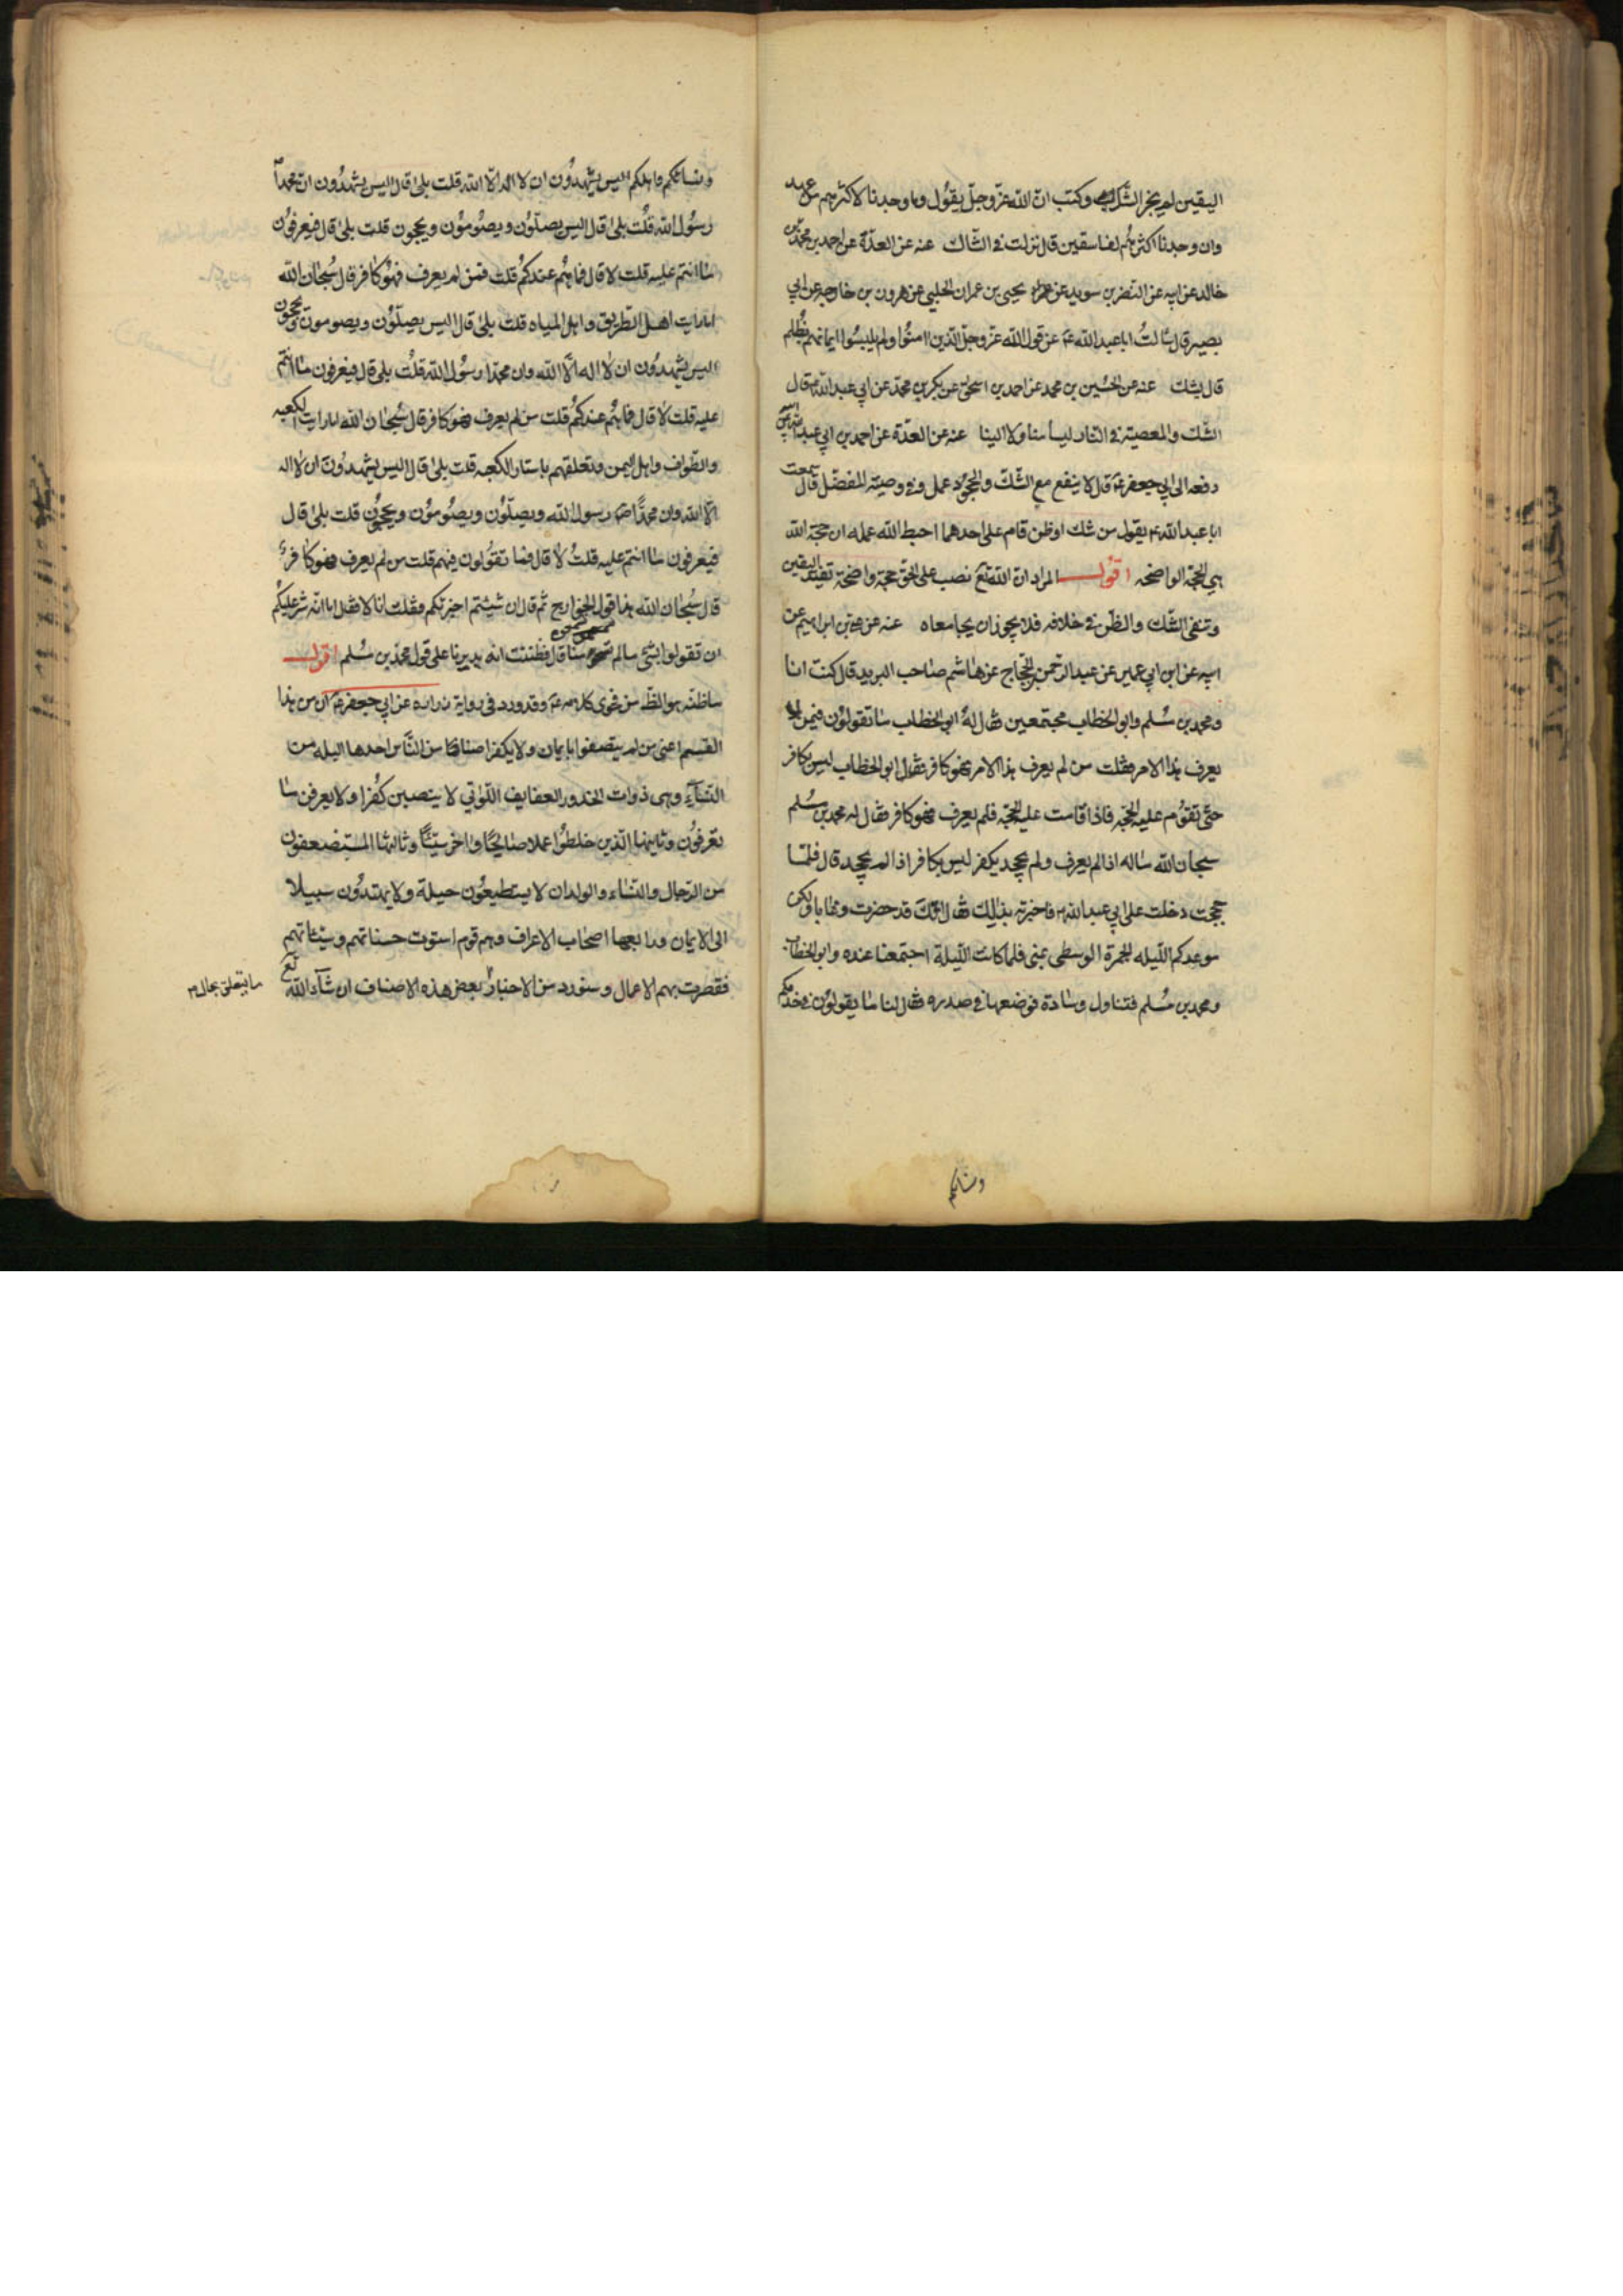 اليقين لم يجز الشك وكتب ان الله عز وجل يقول وما وجدنا لاكثرهم من عهد
وان وجدنا اكثرهم لفاسقين قال نزلت في الشاك عنه عن العدة عن احمد بن محمد بن
خالد عن ابيه عن النضر بن سويد عن يحيى بن عمران الحلبي عن هرون بن خارجه عن ابي
بصير قال سالت ابا عبد الله ع عن قول الله عز وجل الذين امنوا ولم يلبسوا ايمانهم بظلم
قال بشك عنه عن الحسين بن محمد عن احمد بن اسحق عن بكر بن محمد عن ابي عبد الله ع قال
الشك والمعصية في النار ليسا منا ولا الينا عنه عن العدة عن احمد بن ابي عبد الله عن ابيه
رفعه الى ابي جعفر ع قال لا ينفع مع الشك والجحود عمل وفي وصيته المفضل قال سمعت
ابا عبد الله ع يقول من شك او ظن قام على احدهما احبط الله عمله ان حجة الله
هي الحجة الواضحه اقول المراد ان الله تع نصب على الحق حجة واضحة تفيد اليقين
وتنفى الشك والظن في خلافه فلا يجوز ان يجامعاه عنه عن علي بن ابراهيم عن
ابيه عن ابن ابي عمير عن عبد الرحمن بن الحجاج عن هاشم صاحب البريد قال كنت انا
ومحمد بن مسلم وابو الخطاب مجتمعين فقال له ابو الخطاب ما تقولون فيمن لم
يعرف هذا الامر فقلت من لم يعرف هذا الامر فهو كافر فقال ابو الخطاب ليس بكافر
حتى تقوم عليه الحجة فاذا قامت عليه الحجة فلم يعرف فهو كافر فقال له محمد بن مسلم
سبحان الله ماله اذا لم يعرف ولم يجحد يكفر ليس بكافر اذا لم يجحد قال فلما
حججت دخلت على ابي عبد الله ع فاخبرته بذلك فقال انك قد حضرت وغابا ولكن
موعدكم الليله الجمرة الوسطى بمنى فلما كانت الليلة اجتمعنا عنده وابو الخطاب
ومحمد بن مسلم فتناول وسادة فوضعها في صدره فقال لنا ما يقولون في خدمكم
ونسائكم
ونسائكم واهلكم اليس يشهدون ان لا اله الا الله قلت بلى قال اليس يشهدون ان محمدا
رسول الله قلت بلى قال اليس يصلون ويصومون ويحجون قلت بلى قال فيعرفون
ما انتم عليه قلت لا قال فما هم عندكم قلت فمن لم يعرف فهو كافر قال سبحان الله
اما رايت اهل الطريق واهل المياه قلت بلى قال اليس يصلون ويصومون ويحجون
اليس يشهدون ان لا اله الا الله وان محمدا رسول الله قلت بلى قال فيعرفون ما انتم
عليه قلت لا قال فما هم عندكم قلت من لم يعرف فهو كافر قال سبحان الله اما رايت الكعبه
والطواف واهل اليمن وتعلقهم باستار الكعبه قلت بلى قال اليس يشهدون ان لا اله
الا الله وان محمدا رسول الله ويصلون ويصومون ويحجون قلت بلى قال
فيعرفون ما انتم عليه قلت لا قال فما تقولون فيهم قلت من لم يعرف فهو كافر
قال سبحان الله هذا قول الخوارج ثم قال ان شئتم اخبرتكم فقلت انا لا فقال اما انه شر عليكم
ان تقولوا بشئ مالم تسمعوه منا قال فظننت انه يديرنا على قول محمد بن مسلم اقول
ماظنه هو الظ من فحوى كلامه ع وقد ورد في رواية زراره عن ابي جعفر ع ان من هذا
القسم اعني من لم يتصفوا بايمان ولا بكفر اصنافا من الناس احدها البله من
النساء وهي ذوات الخدور العفايف اللواتي لا ينصبن كفرا ولا يعرفن ما
تعرفون وثانيها الذين خلطوا عملا صالحا واخر سيئا وثالثها المستضعفون
من الرجال والنساء والولدان لا يستطيعون حيلة ولا يهتدون سبيلا
الى الايمان ورابعها اصحاب الاعراف وهم قوم استوت حسناتهم وسيئاتهم
فقصرت بهم الاعمال وسنورد من الاخبار بعض هذه الاصناف ان شاء الله تع
ما يتعلق بحال